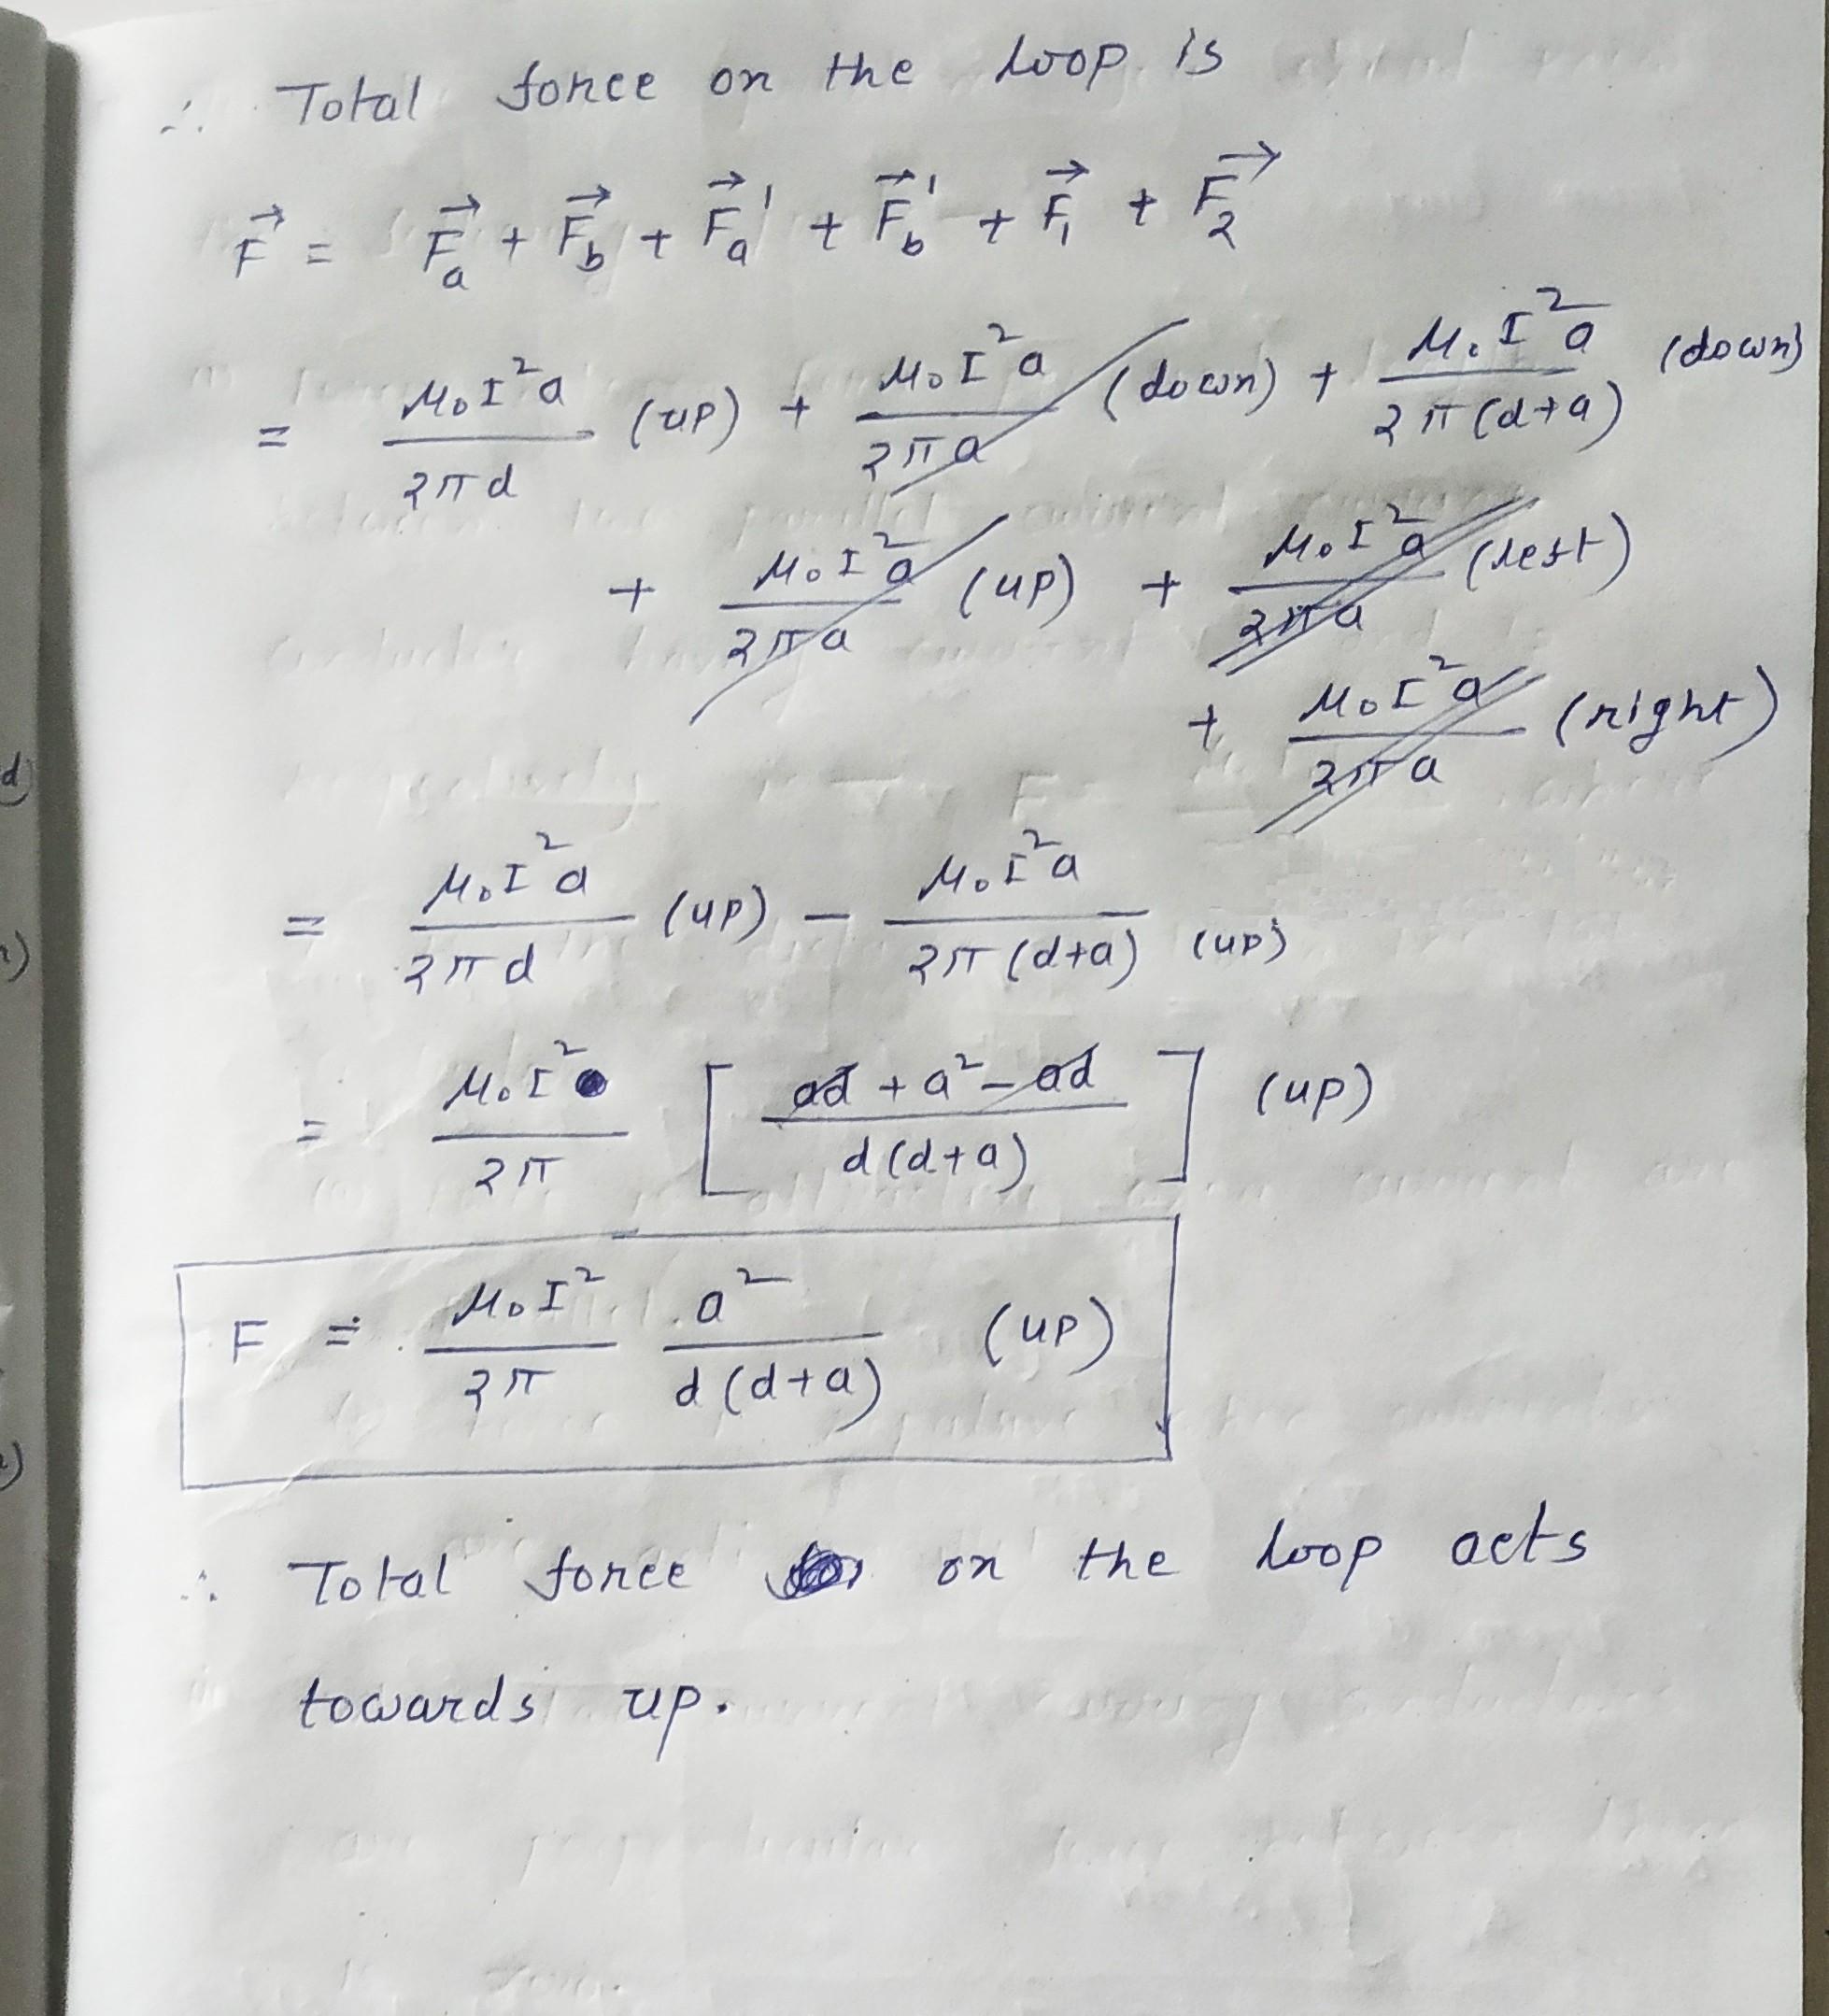 ∴ Total force on the loop is
F⃗ = F⃗a + F⃗b + F⃗a' + F⃗b' + F⃗1 + F⃗2
= μ₀I²a / 2πd (up) + μ₀I²a / 2πa (down) + μ₀I²a / 2π(d+a) (down)
+ μ₀I²a / 2πa (up) + μ₀I²a / 2πa (left)
+ μ₀I²a / 2πa (right)
= μ₀I²a / 2πd (up) − μ₀I²a / 2π(d+a) (up)
= μ₀I² / 2π [ ad + a² − ad / d(d+a) ] (up)
F = μ₀I² / 2π a² / d(d+a) (up)
∴ Total force on the loop acts
towards up.
d)
)
)